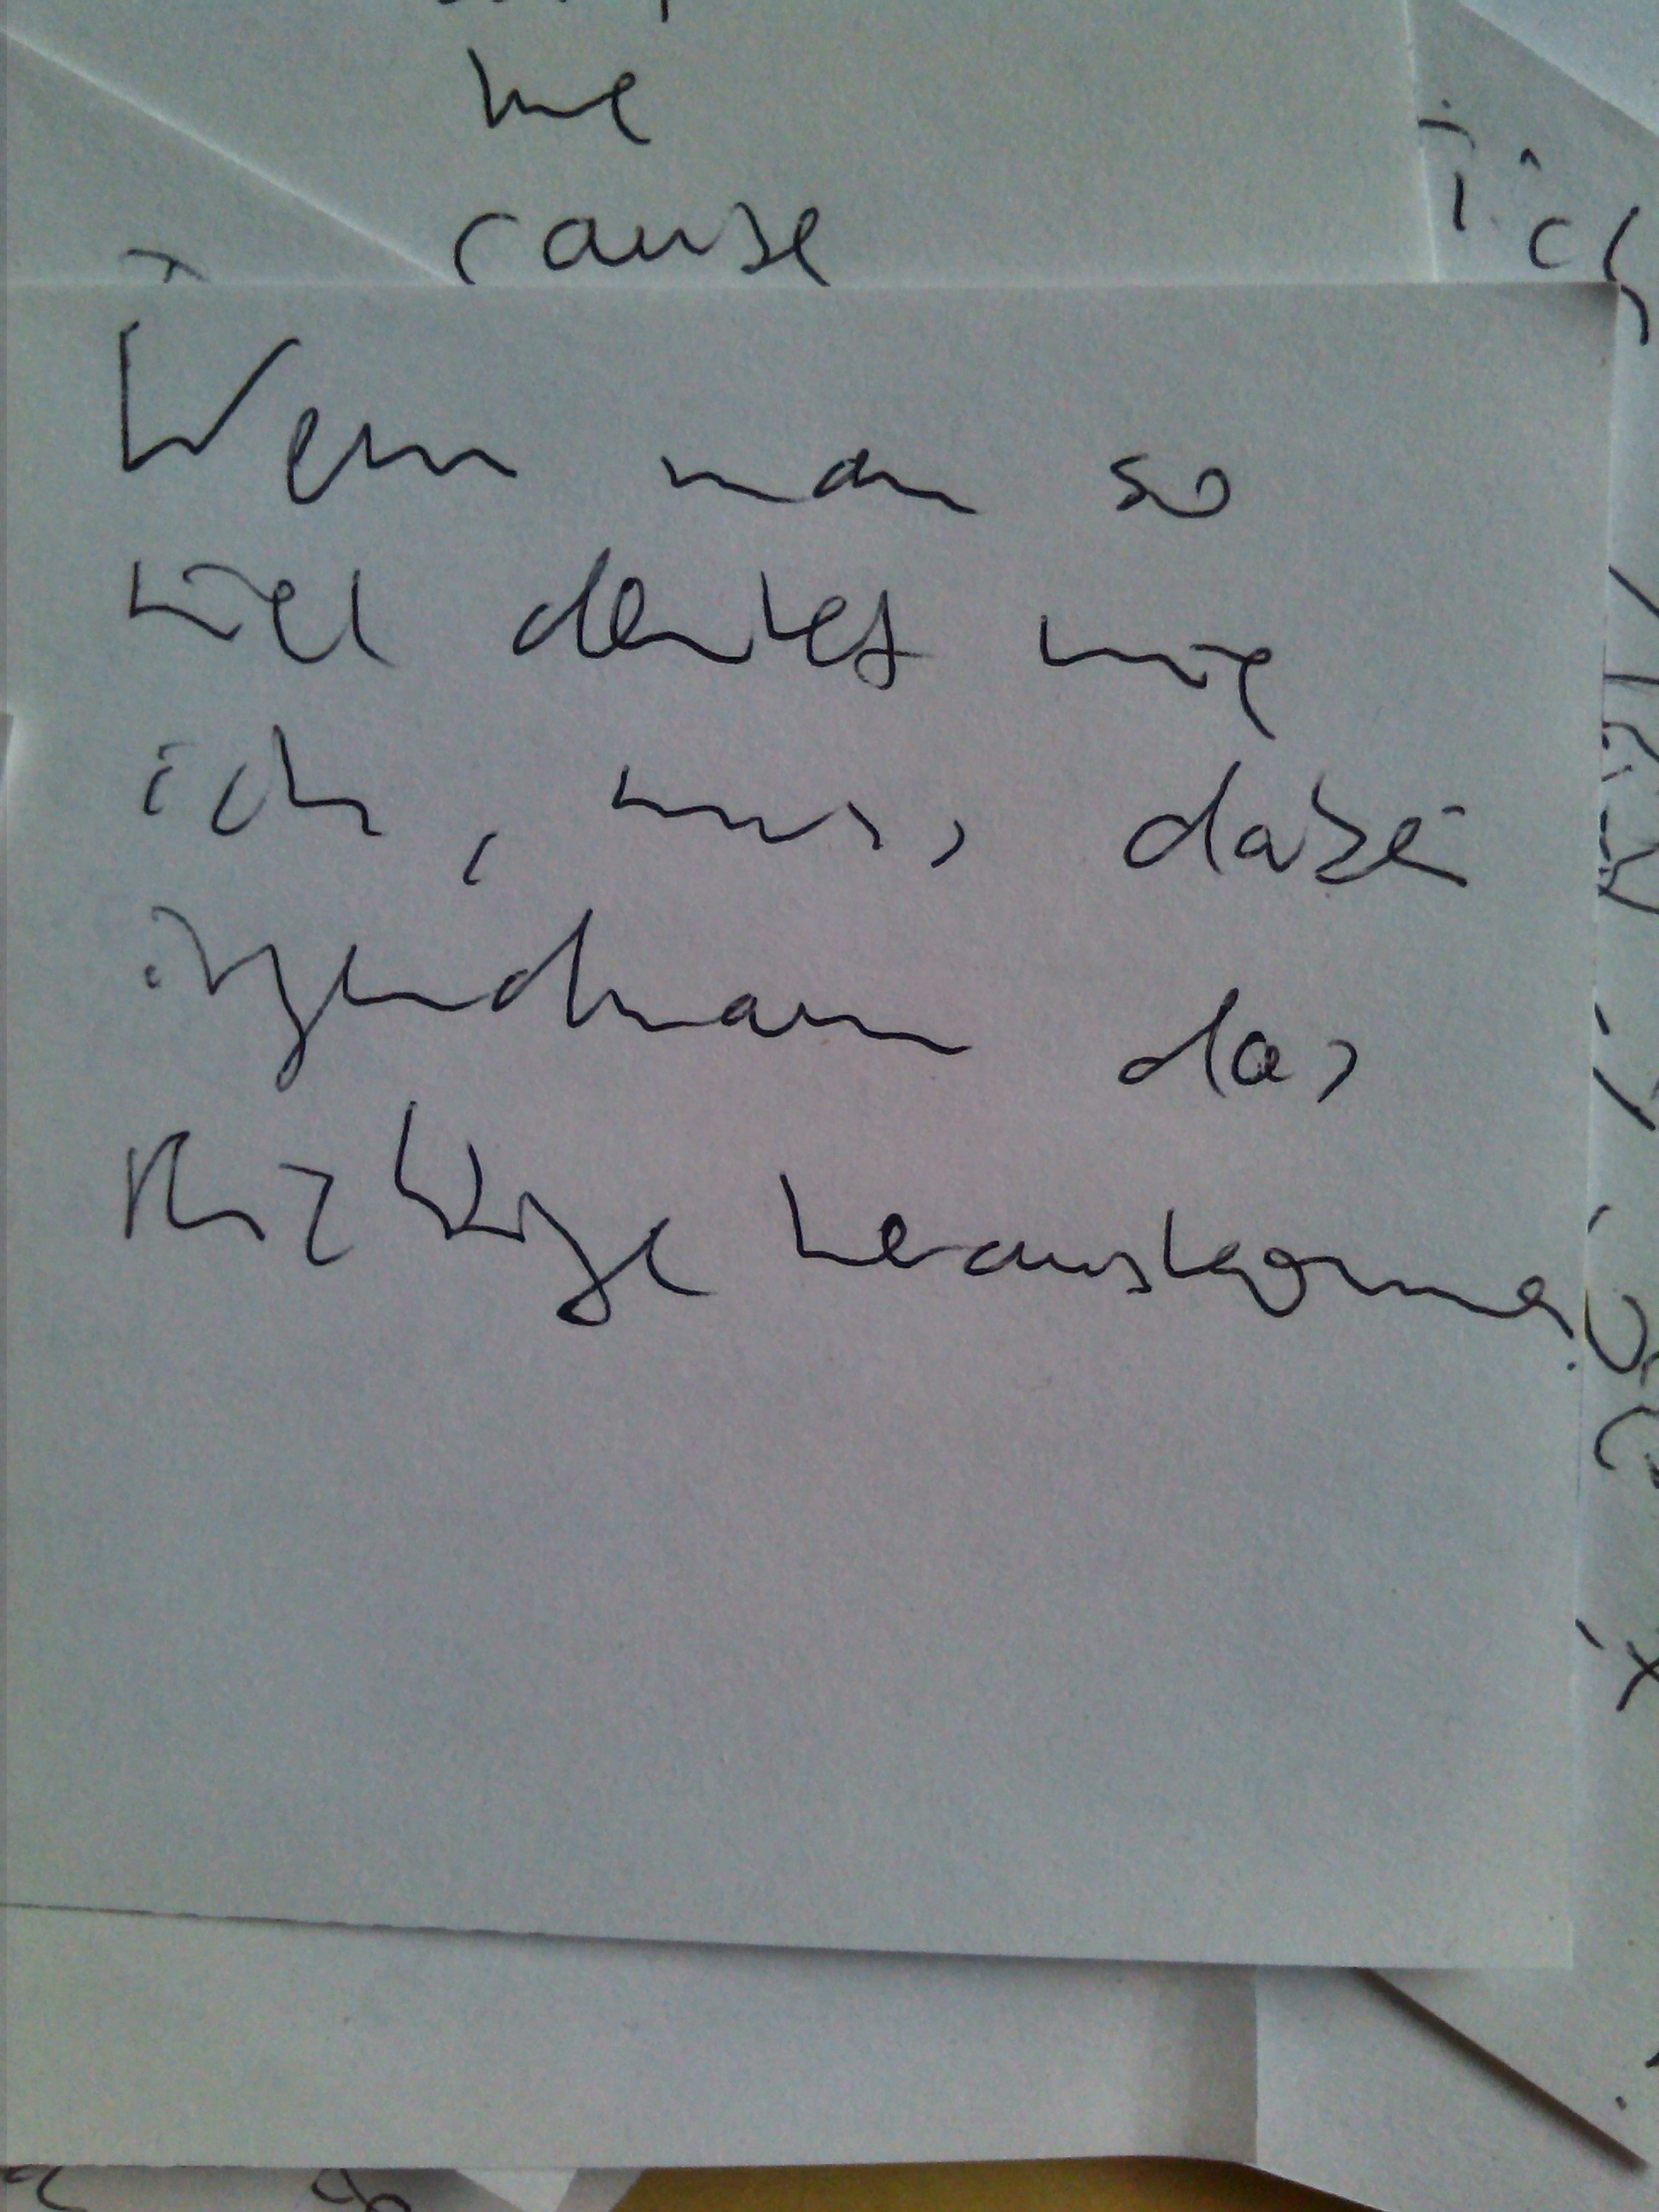 me
cause
ich
Wenn man so
viel denkt wie
ich, muss dabei
irgendwann das
Richtige herauskommen.